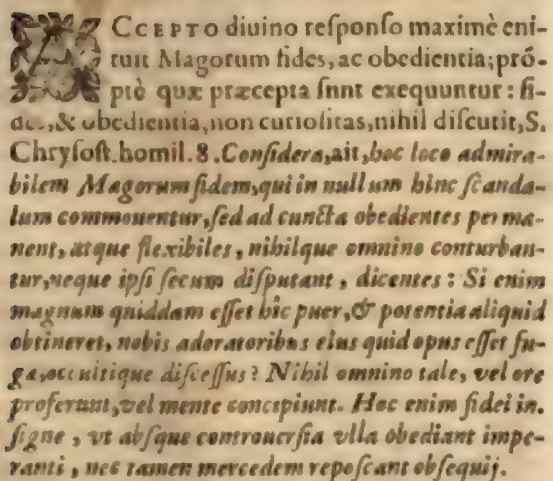 ACCEPTO diuino reſponſo maximè eni-
tuit Magorum fides, ac obedientia; pró-
ptè quæ præcepta ſunt exequuntur: fi-
des, & obedientia, non curioſitas, nihil diſcutit, S.
Chryſoſt. homil. 8. Conſidera, ait, hoc loco admira-
bilem Magorum fidem, qui in nullum hinc ſcanda-
lum commouentur, ſed ad cuncta obedientes perma-
nent, atque flexibiles, nihilque omnino conturban-
tur, neque ipſi ſecum diſputant, dicentes: Si enim
magnum quiddam eſſet hic puer, & potentia aliquid
obtineret, nobis adoratoribus eius quid opus eſſet fu-
ga, occultique diſceſſus? Nihil omnino tale, vel ore
proferunt, vel mente concipiunt. Hoc enim fidei in-
ſigne, vt abſque controuerſia vlla obediant impe-
ranti, nec tamen mercedem repoſcant obſequij.